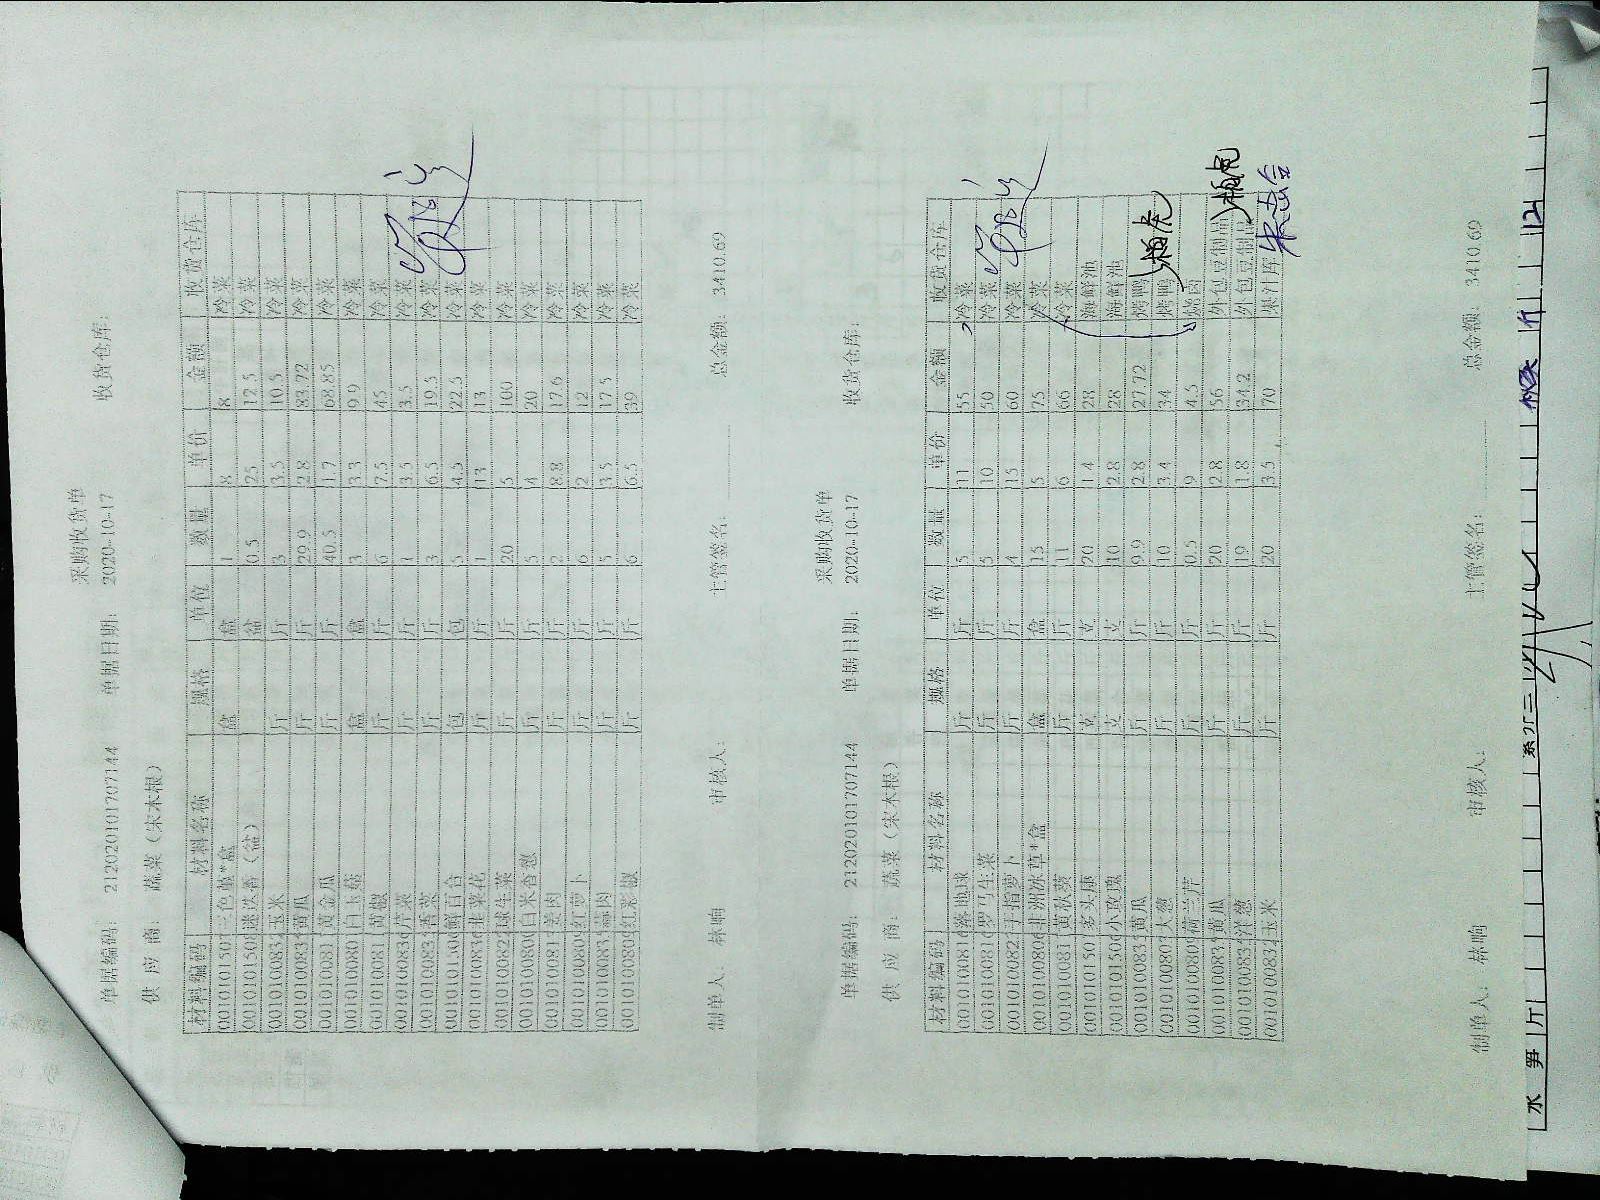 采购收货单
单据编码: 21202010170 7144 单据日期: 2020-10-17 收货仓库:
供 应 商: 蔬菜（宋木根）
材料编码 材料名称 规格 单位 数量 单价 金额 收货仓库
001010150 三色堇*盒 盒 盒 1 8 8 冷菜
001010150 迷迭香（盆） 盆 0.5 25 12.5 冷菜
001010083 玉米 斤 斤 3 3.5 10.5 冷菜
001010083 黄瓜 斤 斤 29.9 2.8 83.72 冷菜
001010081 黄金瓜 斤 斤 40.5 1.7 68.85 冷菜
001010080 白玉菇 盒 盒 3 3.3 9.9 冷菜
001010081 黄椒 斤 斤 6 7.5 45 冷菜
001010083 芹菜 斤 斤 1 3.5 3.5 冷菜
001010083 香菜 斤 斤 3 6.5 19.5 冷菜
001010150 鲜百合 包 包 5 4.5 22.5 冷菜
001010083 韭菜花 斤 斤 1 13 13 冷菜
001010082 球生菜 斤 斤 20 5 100 冷菜
001010080 白米香葱 斤 斤 5 4 20 冷菜
001010081 姜肉 斤 斤 2 8.8 17.6 冷菜
001010080 红萝卜 斤 斤 6 2 12 冷菜
001010083 蒜肉 斤 斤 5 3.5 17.5 冷菜
001010080 红彩椒 斤 斤 6 6.5 39 冷菜
制单人: 林响 审核人: 主管签名: 总金额: 3410.69
采购收货单
单据编码: 212020101707144 单据日期: 2020-10-17 收货仓库:
供 应 商: 蔬菜（宋木根）
材料编码 材料名称 规格 单位 数量 单价 金额 收货仓库
001010081 斤 斤 5 11 55 冷菜
001010081 罗马生菜 斤 斤 5 10 50 冷菜
001010082 手指萝卜 斤 斤 4 15 60 冷菜
001010080 非洲冰草*盒 盒 盒 15 5 75 冷菜
001010081 黄秋葵 斤 斤 11 6 66 冷菜
001010150 多头康 支 支 20 1.4 28 海鲜池
001010150 小玫瑰 支 支 10 2.8 28 海鲜池
001010083 黄瓜 斤 斤 9.9 2.8 27.72 烤鸭
001010080 大葱 斤 斤 10 3.4 34 烤鸭
001010080 荷兰芹 斤 斤 0.5 9 4.5 烧卤
001010083 黄瓜 斤 斤 20 2.8 56 外包豆制品
001010083 洋葱 斤 斤 19 1.8 34.2 外包豆制品
001010083 玉米 斤 斤 20 3.5 70 果汁库
制单人: 林响 审核人: 主管签名: 总金额: 3410.69
水 笋 斤 斤 12